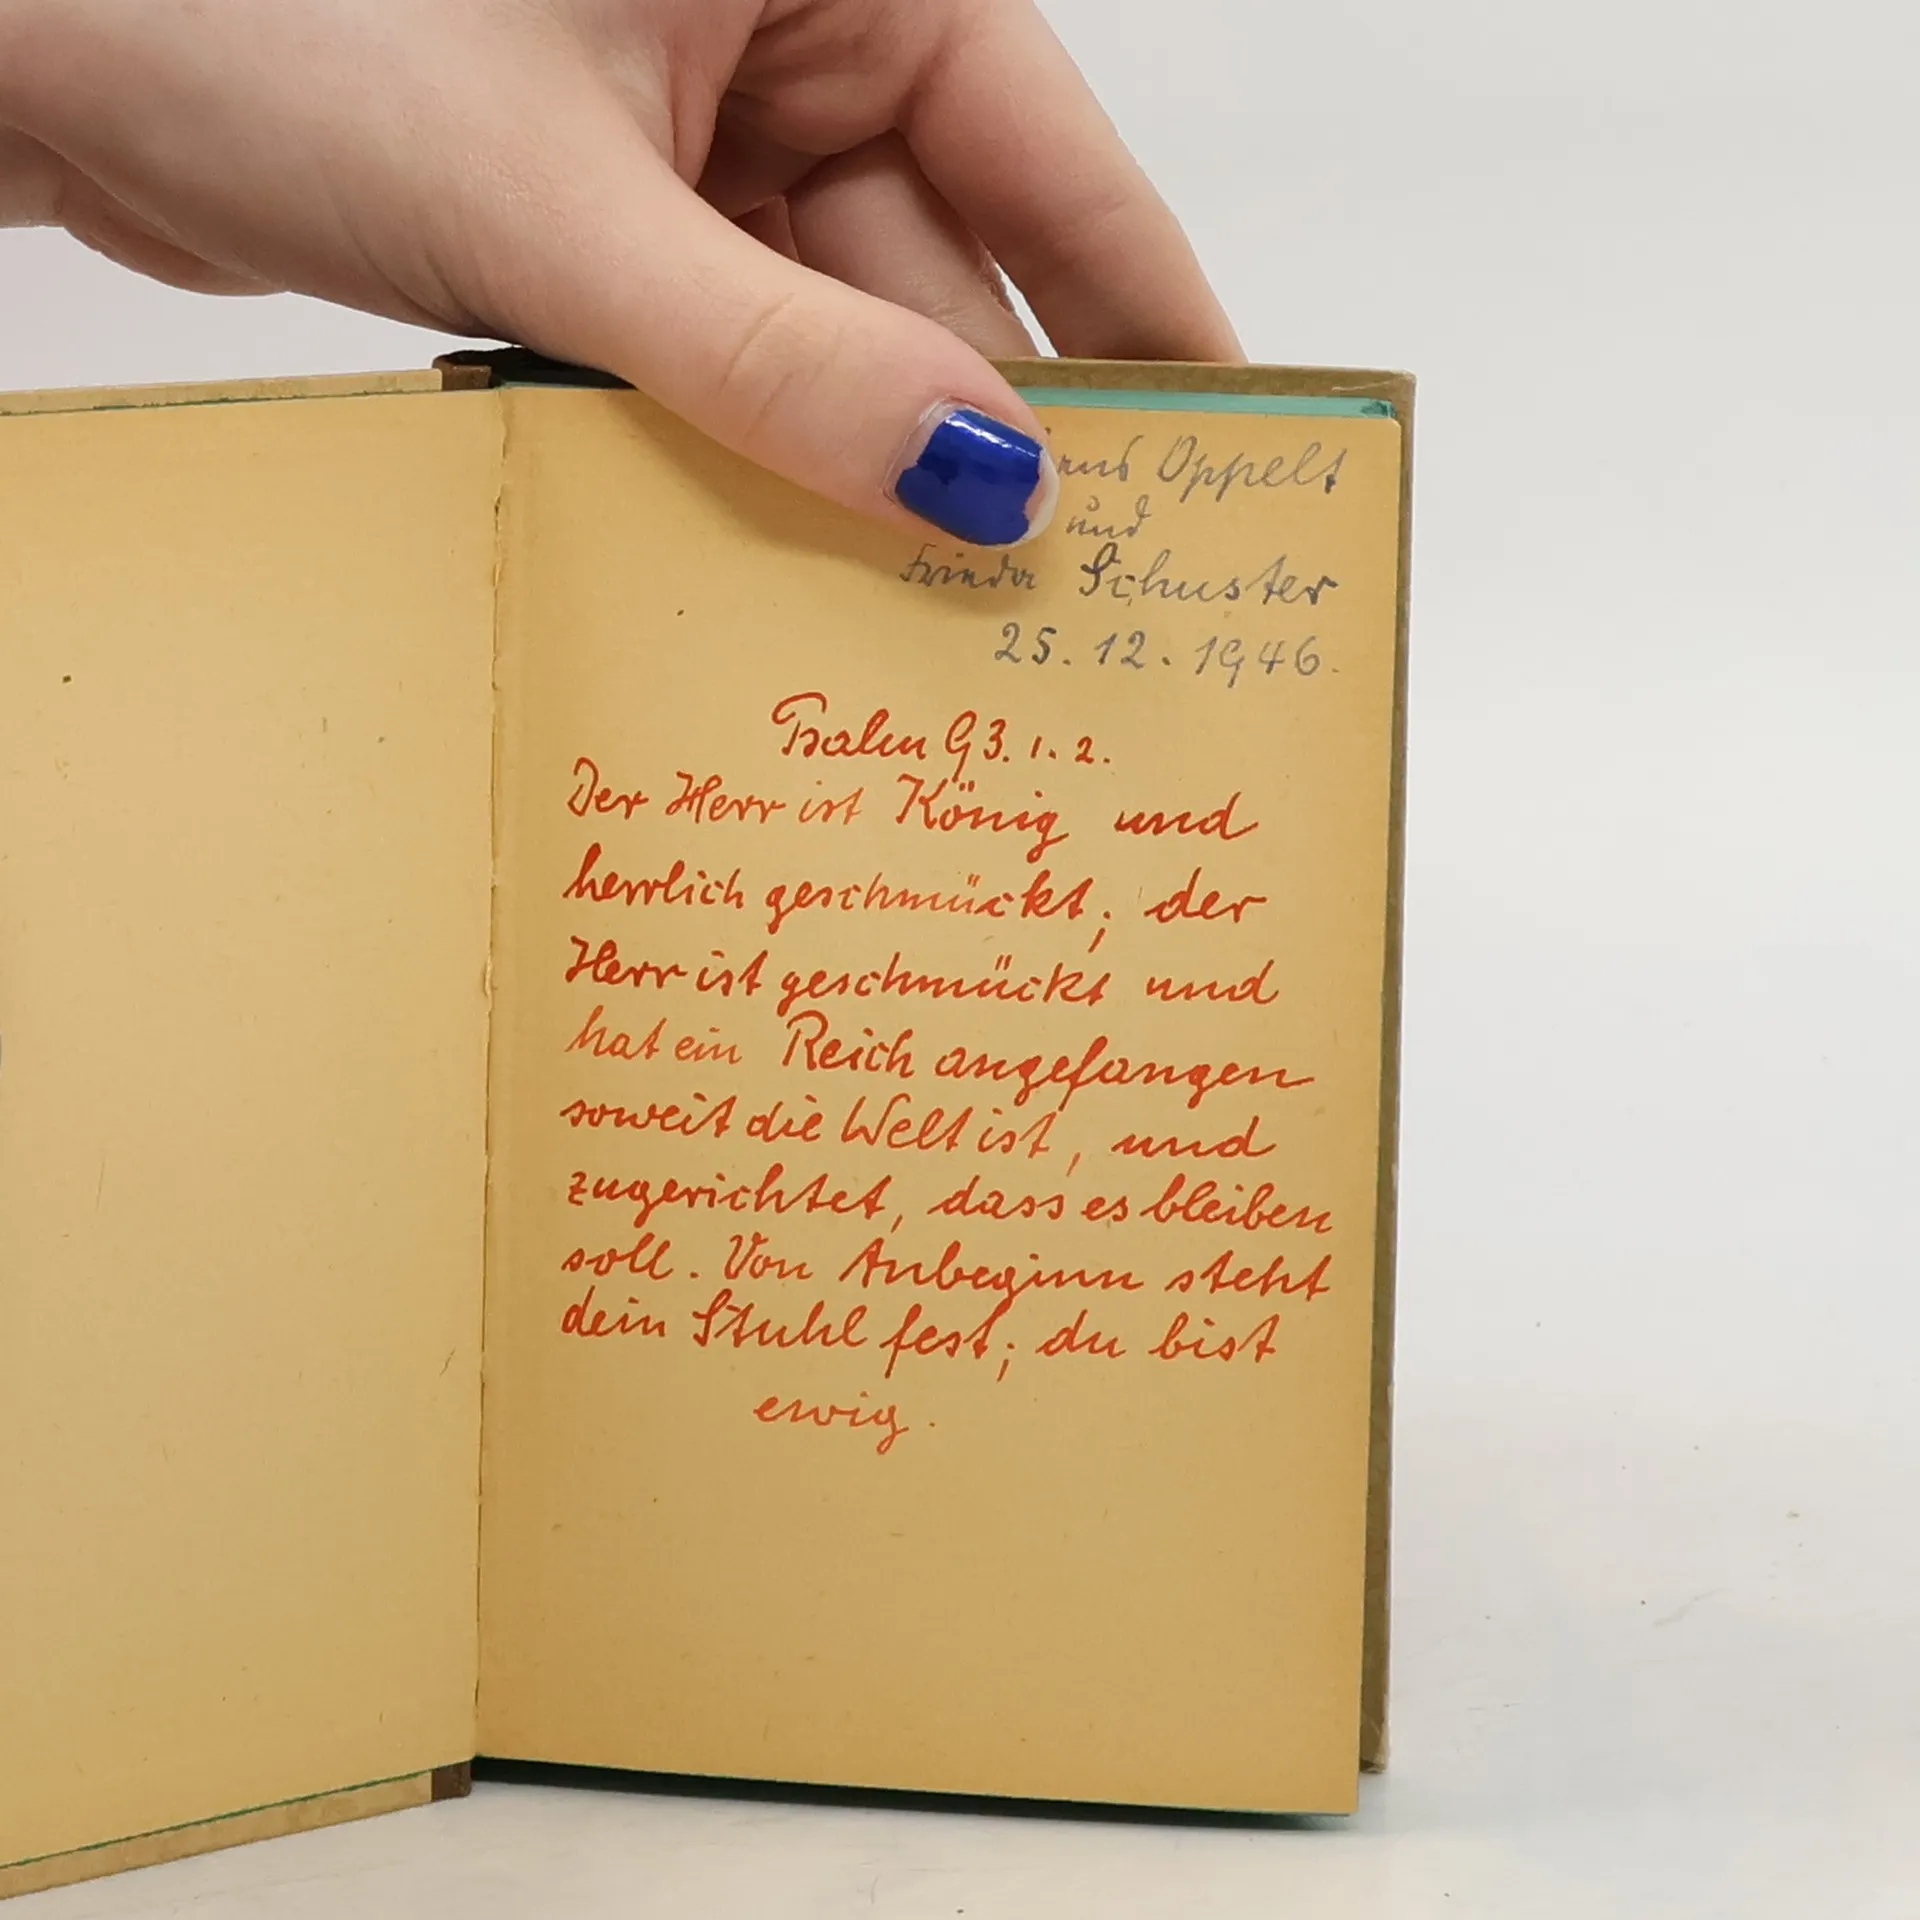 Oppelt
und
Frieda Schuster
25. 12. 1946.
Psalm 93. 1. 2.
Der Herr ist König und
herrlich geschmückt; der
Herr ist geschmückt und
hat ein Reich angefangen
soweit die Welt ist, und
zugerichtet, dass es bleiben
soll. Von Anbeginn steht
dein Stuhl fest; du bist
ewig.